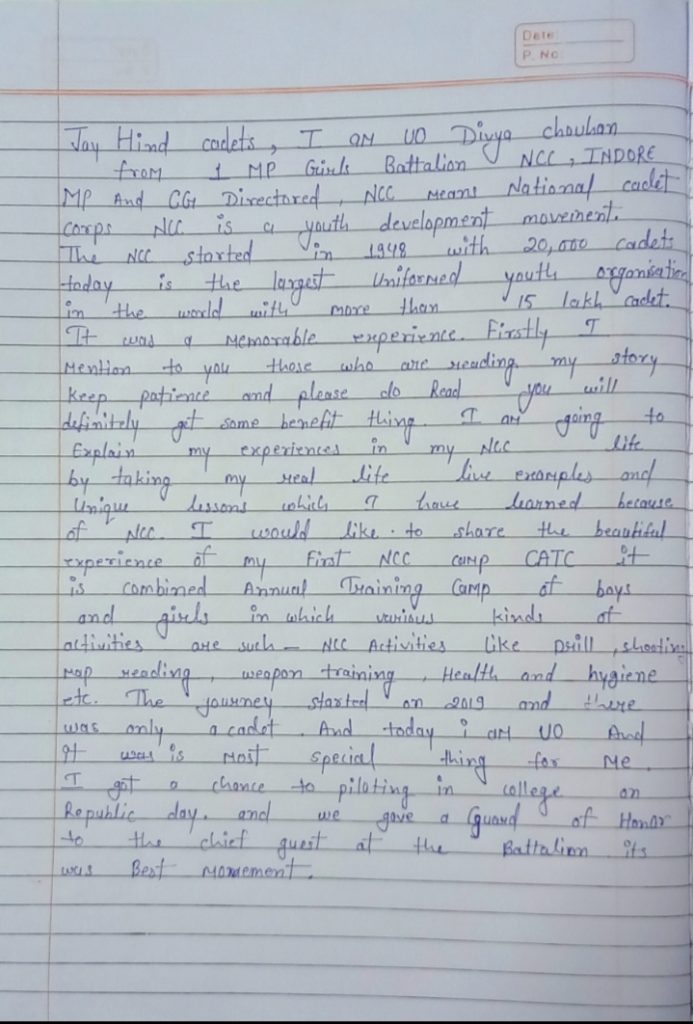 Date
P. No
Jay Hind cadets, I am UO Divya chouhan
from 1 MP Girls Battalion NCC, INDORE
MP And CG Directored, NCC Means National cadet
corps NCC is a youth development movement.
The NCC started in 1948 with 20,000 cadets
today is the largest Uniformed youth organisation
in the world with more than 15 lakh cadet.
It was a memorable experience. Firstly I
Mention to you those who are reading my story
keep patience and please do Read you will
definitely get some benefit thing. I am going to
Explain my experiences in my NCC life
by taking my real life live examples and
Unique lessons which I have learned because
of NCC. I would like to share the beautiful
experience of my First NCC camp CATC it
is combined Annual Training Camp of boys
and girls in which various kinds of
activities are such - NCC Activities like Drill, shooting
Map reading, weapon training, Health and hygiene
etc. The journey started on 2019 and there
was only a cadet. And today i am UO And
It was is most special thing for me.
I got a chance to piloting in college on
Republic day. and we gave a Guard of Honor
to the chief guest at the Battalion its
was Best Momement.